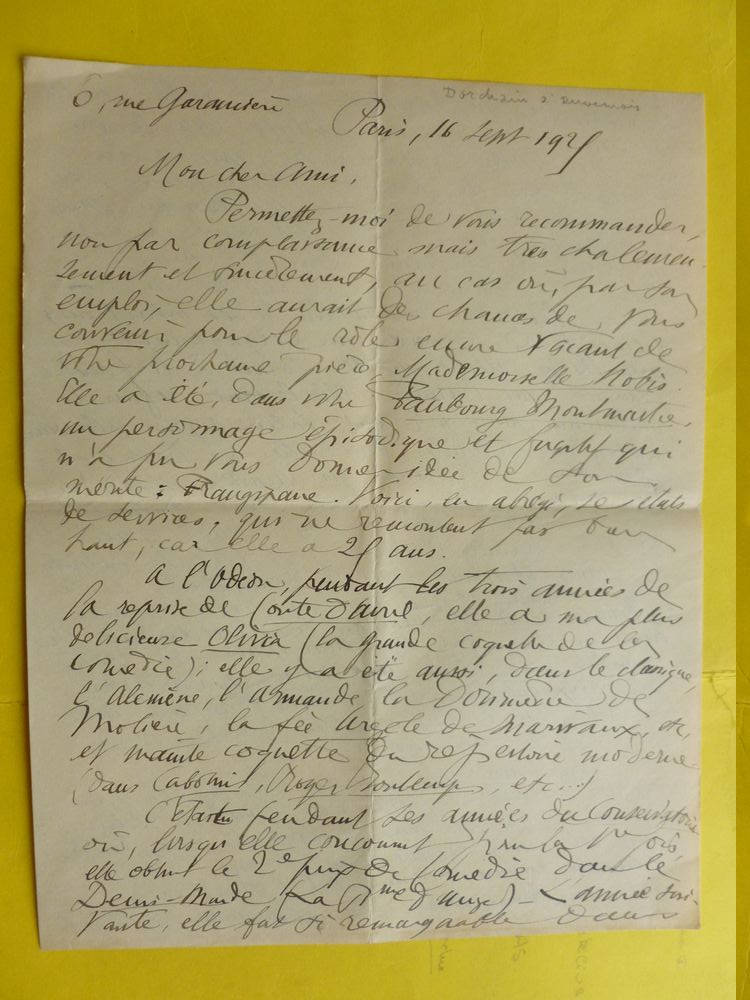 6, rue Garancière
Paris, 16 Sept 1925
Mon cher Ami,
Permettez-moi de vous recommander,
non par complaisance mais très chaleureu-
sement et sincèrement, au cas où, par son
emploi, elle aurait des chances de vous
convenir pour le rôle encore vacant de
votre prochaine pièce, Mademoiselle Nobis.
Elle a été, dans votre Faubourg Montmartre,
un personnage épisodique et fugitif qui
n'a pu vous donner idée de son
mérite : Frangipane. Voici, en abrégé, ses états
de services, qui ne remontent pas bien
haut, car elle a 25 ans.
A l'Odéon, pendant les trois années de
la reprise de Conte d'avril, elle a ma plus
délicieuse Olivia (la grande coquette de la
Comédie) ; elle y a été aussi, dans le classique,
l'Alcmène, l'Armande, la Dorimène de
Molière, la fée Argèle de Marivaux, etc,
et mainte coquette du répertoire moderne
(dans Cabotins, Roger Bontemps, etc...)
C'était pendant ses années du Conservatoire
où, lorsqu'elle concourut pour la 1re fois,
elle obtint le 2e prix de Comédie dans le
Demi-Monde (la Bnne d'Ange) - L'année sui-
vante, elle fut si remarquable dans